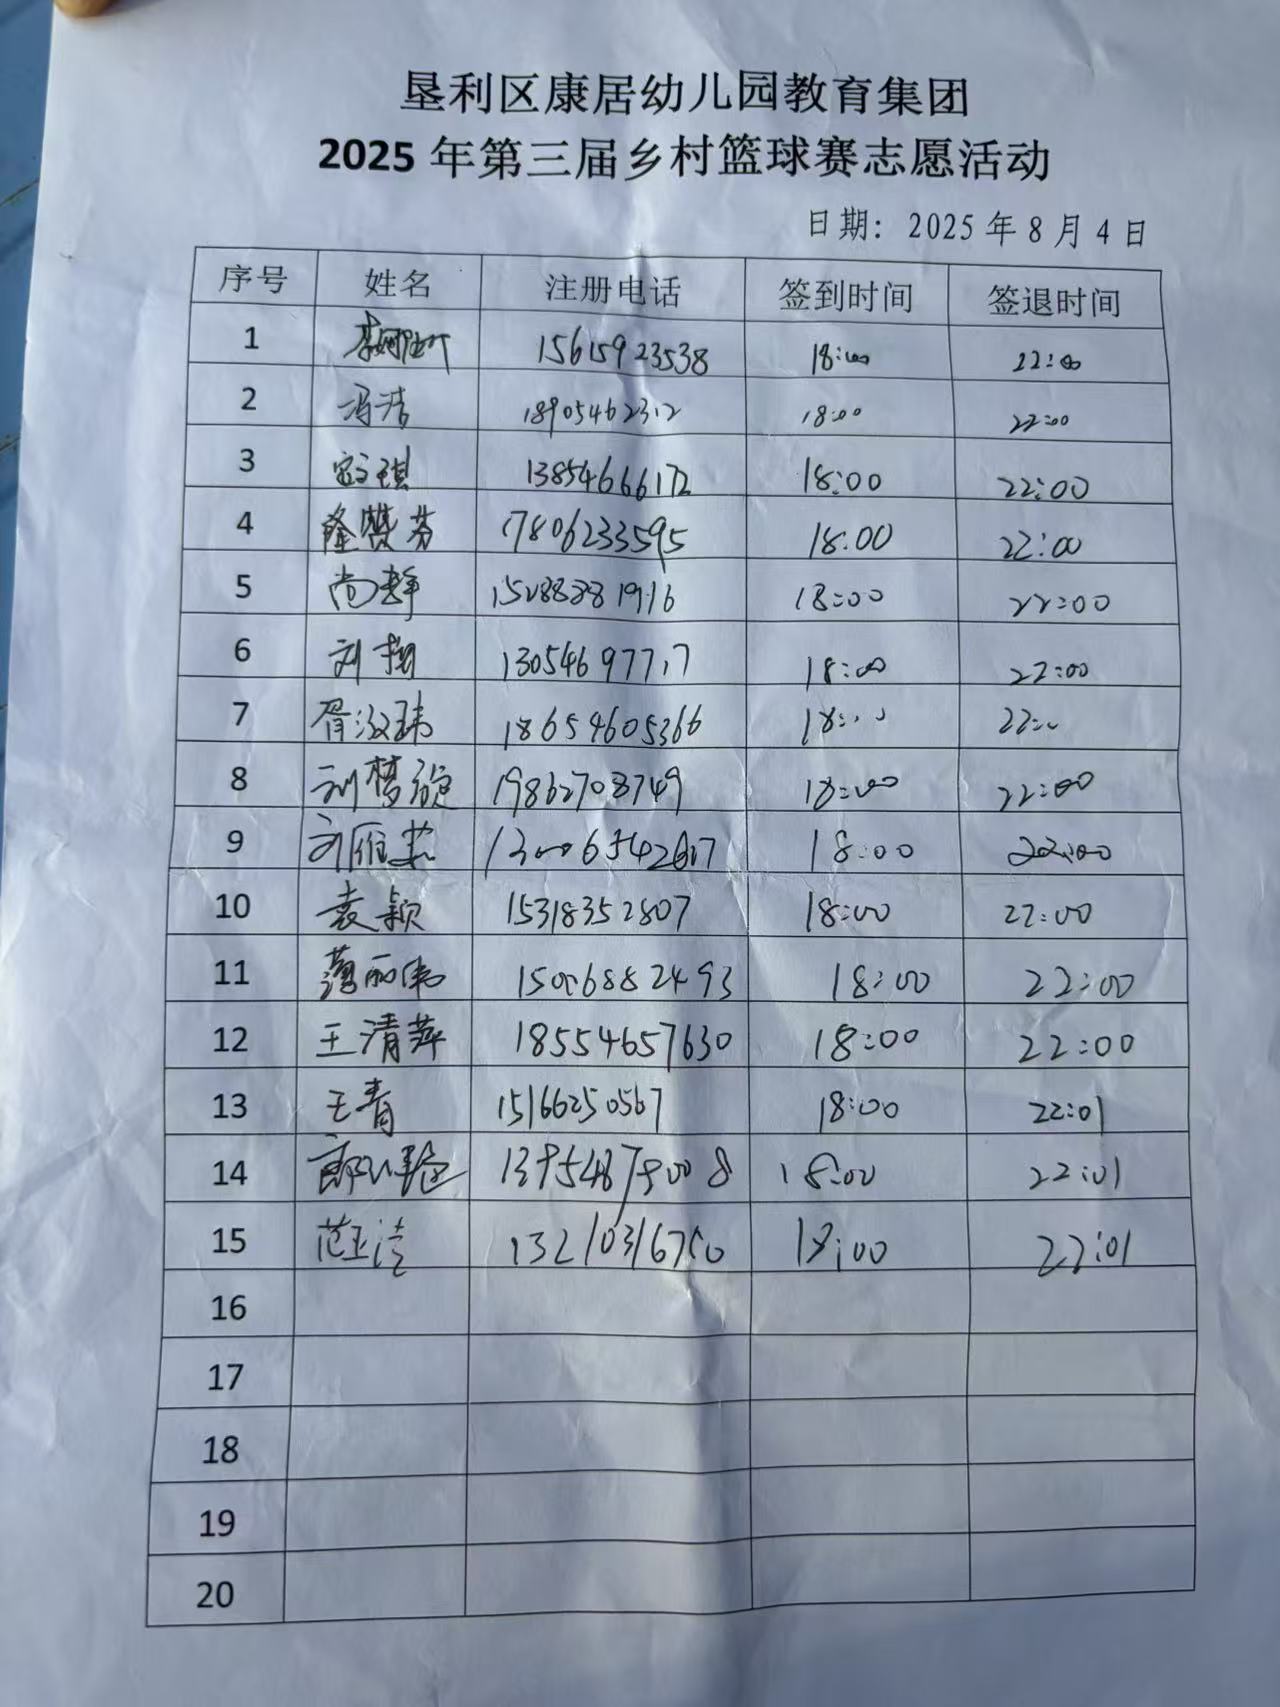 垦利区康居幼儿园教育集团
2025 年第三届乡村篮球赛志愿活动
日期: 2025 年 8 月 4 日
序号 姓名 注册电话 签到时间 签退时间
1 15615923538 18:00 22:00
2 冯洁 18905462312 18:00 22:00
3 寇文琪 13854666172 18:00 22:00
4 隆赞芬 17806233595 18:00 22:00
5 尚静 15288881916 18:00 22:00
6 刘翔 13054697717 18:00 22:00
7 胥汶玮 18654605366 18:00 22:00
8 刘梦 19862708749 18:00 22:00
9 刘雁 18:00 22:00
10 袁颖 15318352807 18:00 22:00
11 丽伟 15006882493 18:00 22:00
12 王清萍 18554657630 18:00 22:00
13 王青 15166250567 18:00 22:01
14 18:00 22:01
15 范玉洁 13210316750 18:00 22:01
16
17
18
19
20